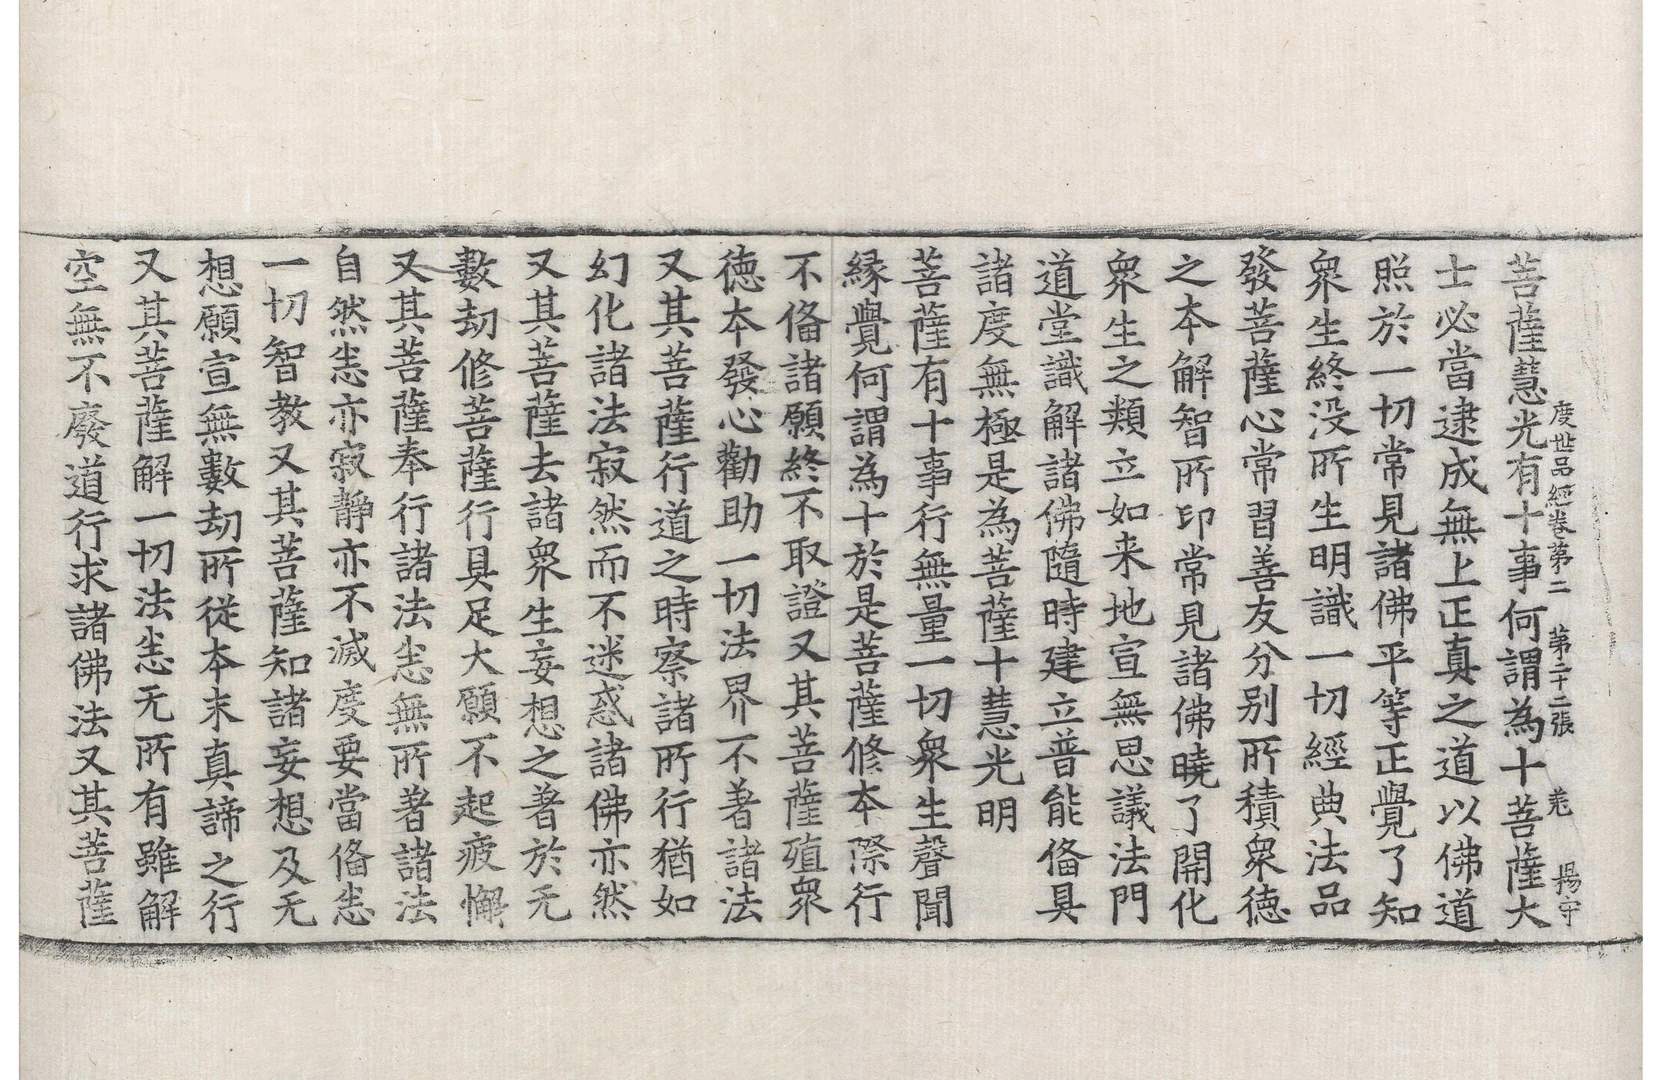 度世品經卷第二 第二十二張 羌 楊守
菩薩慧光有十事何謂為十菩薩大
士必當逮成無上正真之道以佛道
照於一切常見諸佛平等正覺了知
衆生終没所生明識一切經典法品
發菩薩心常習善友分別所積衆德
之本解智所印常見諸佛曉了開化
衆生之類立如来地宣無思議法門
道堂識解諸佛隨時建立普能俻具
諸度無極是為菩薩十慧光明
菩薩有十事行無量一切衆生聲聞
緣覺何謂為十於是菩薩修本際行
不俻諸願終不取證又其菩薩殖衆
德本發心勸助一切法界不著諸法
又其菩薩行道之時察諸所行猶如
幻化諸法寂然而不迷惑諸佛亦然
又其菩薩去諸衆生妄想之著於无
數劫修菩薩行具足大願不起疲懈
又其菩薩奉行諸法悉無所著諸法
自然悉亦寂靜亦不滅度要當俻悉
一切智教又其菩薩知諸妄想及无
想願宣無數劫所從本末真諦之行
又其菩薩解一切法悉无所有雖解
空無不廢道行求諸佛法又其菩薩